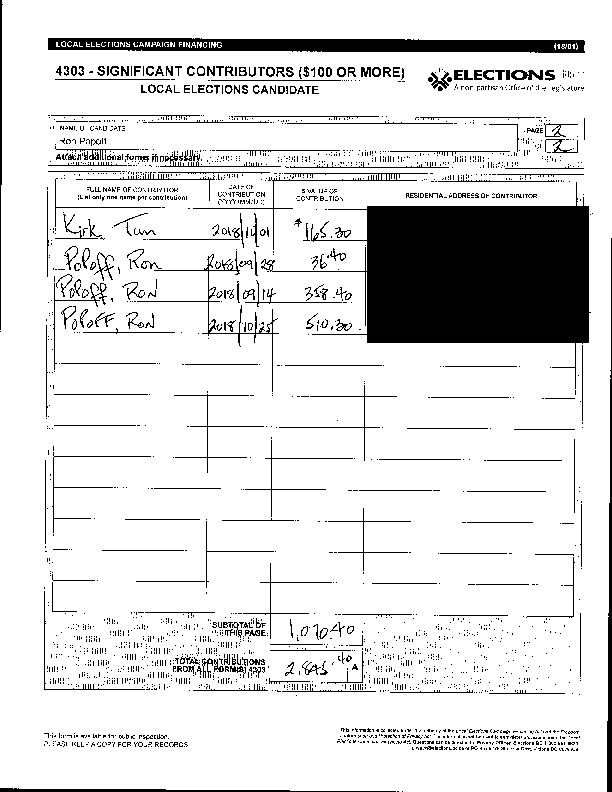 LOCAL ELECTIONS CAMPAIGN FINANCING (18/01)
4303 - SIGNIFICANT CONTRIBUTORS ($100 OR MORE)
LOCAL ELECTIONS CANDIDATE
ELECTIONS
A non-partisan Office of the Legislature
NAME OF CANDIDATE
PAGE 2
Ron Popoff
of 2
Attach additional forms if necessary.
FULL NAME OF CONTRIBUTOR
(List only one name per contribution)
DATE OF CONTRIBUTION
(YYYY/MM/DD)
$ VALUE OF CONTRIBUTION
RESIDENTIAL ADDRESS OF CONTRIBUTOR
Kirk Tam 2018/10/01 $165.30
Popoff, Ron 2018/09/28 36.40
Popoff, Ron 2018/09/14 358.40
Popoff, Ron 2018/10/25 510.30
SUBTOTAL OF THIS PAGE 1,070.40
TOTAL CONTRIBUTIONS FROM ALL FORM(S) 4303 2,845.40 A
This form is available for public inspection.
PLEASE KEEP A COPY FOR YOUR RECORDS